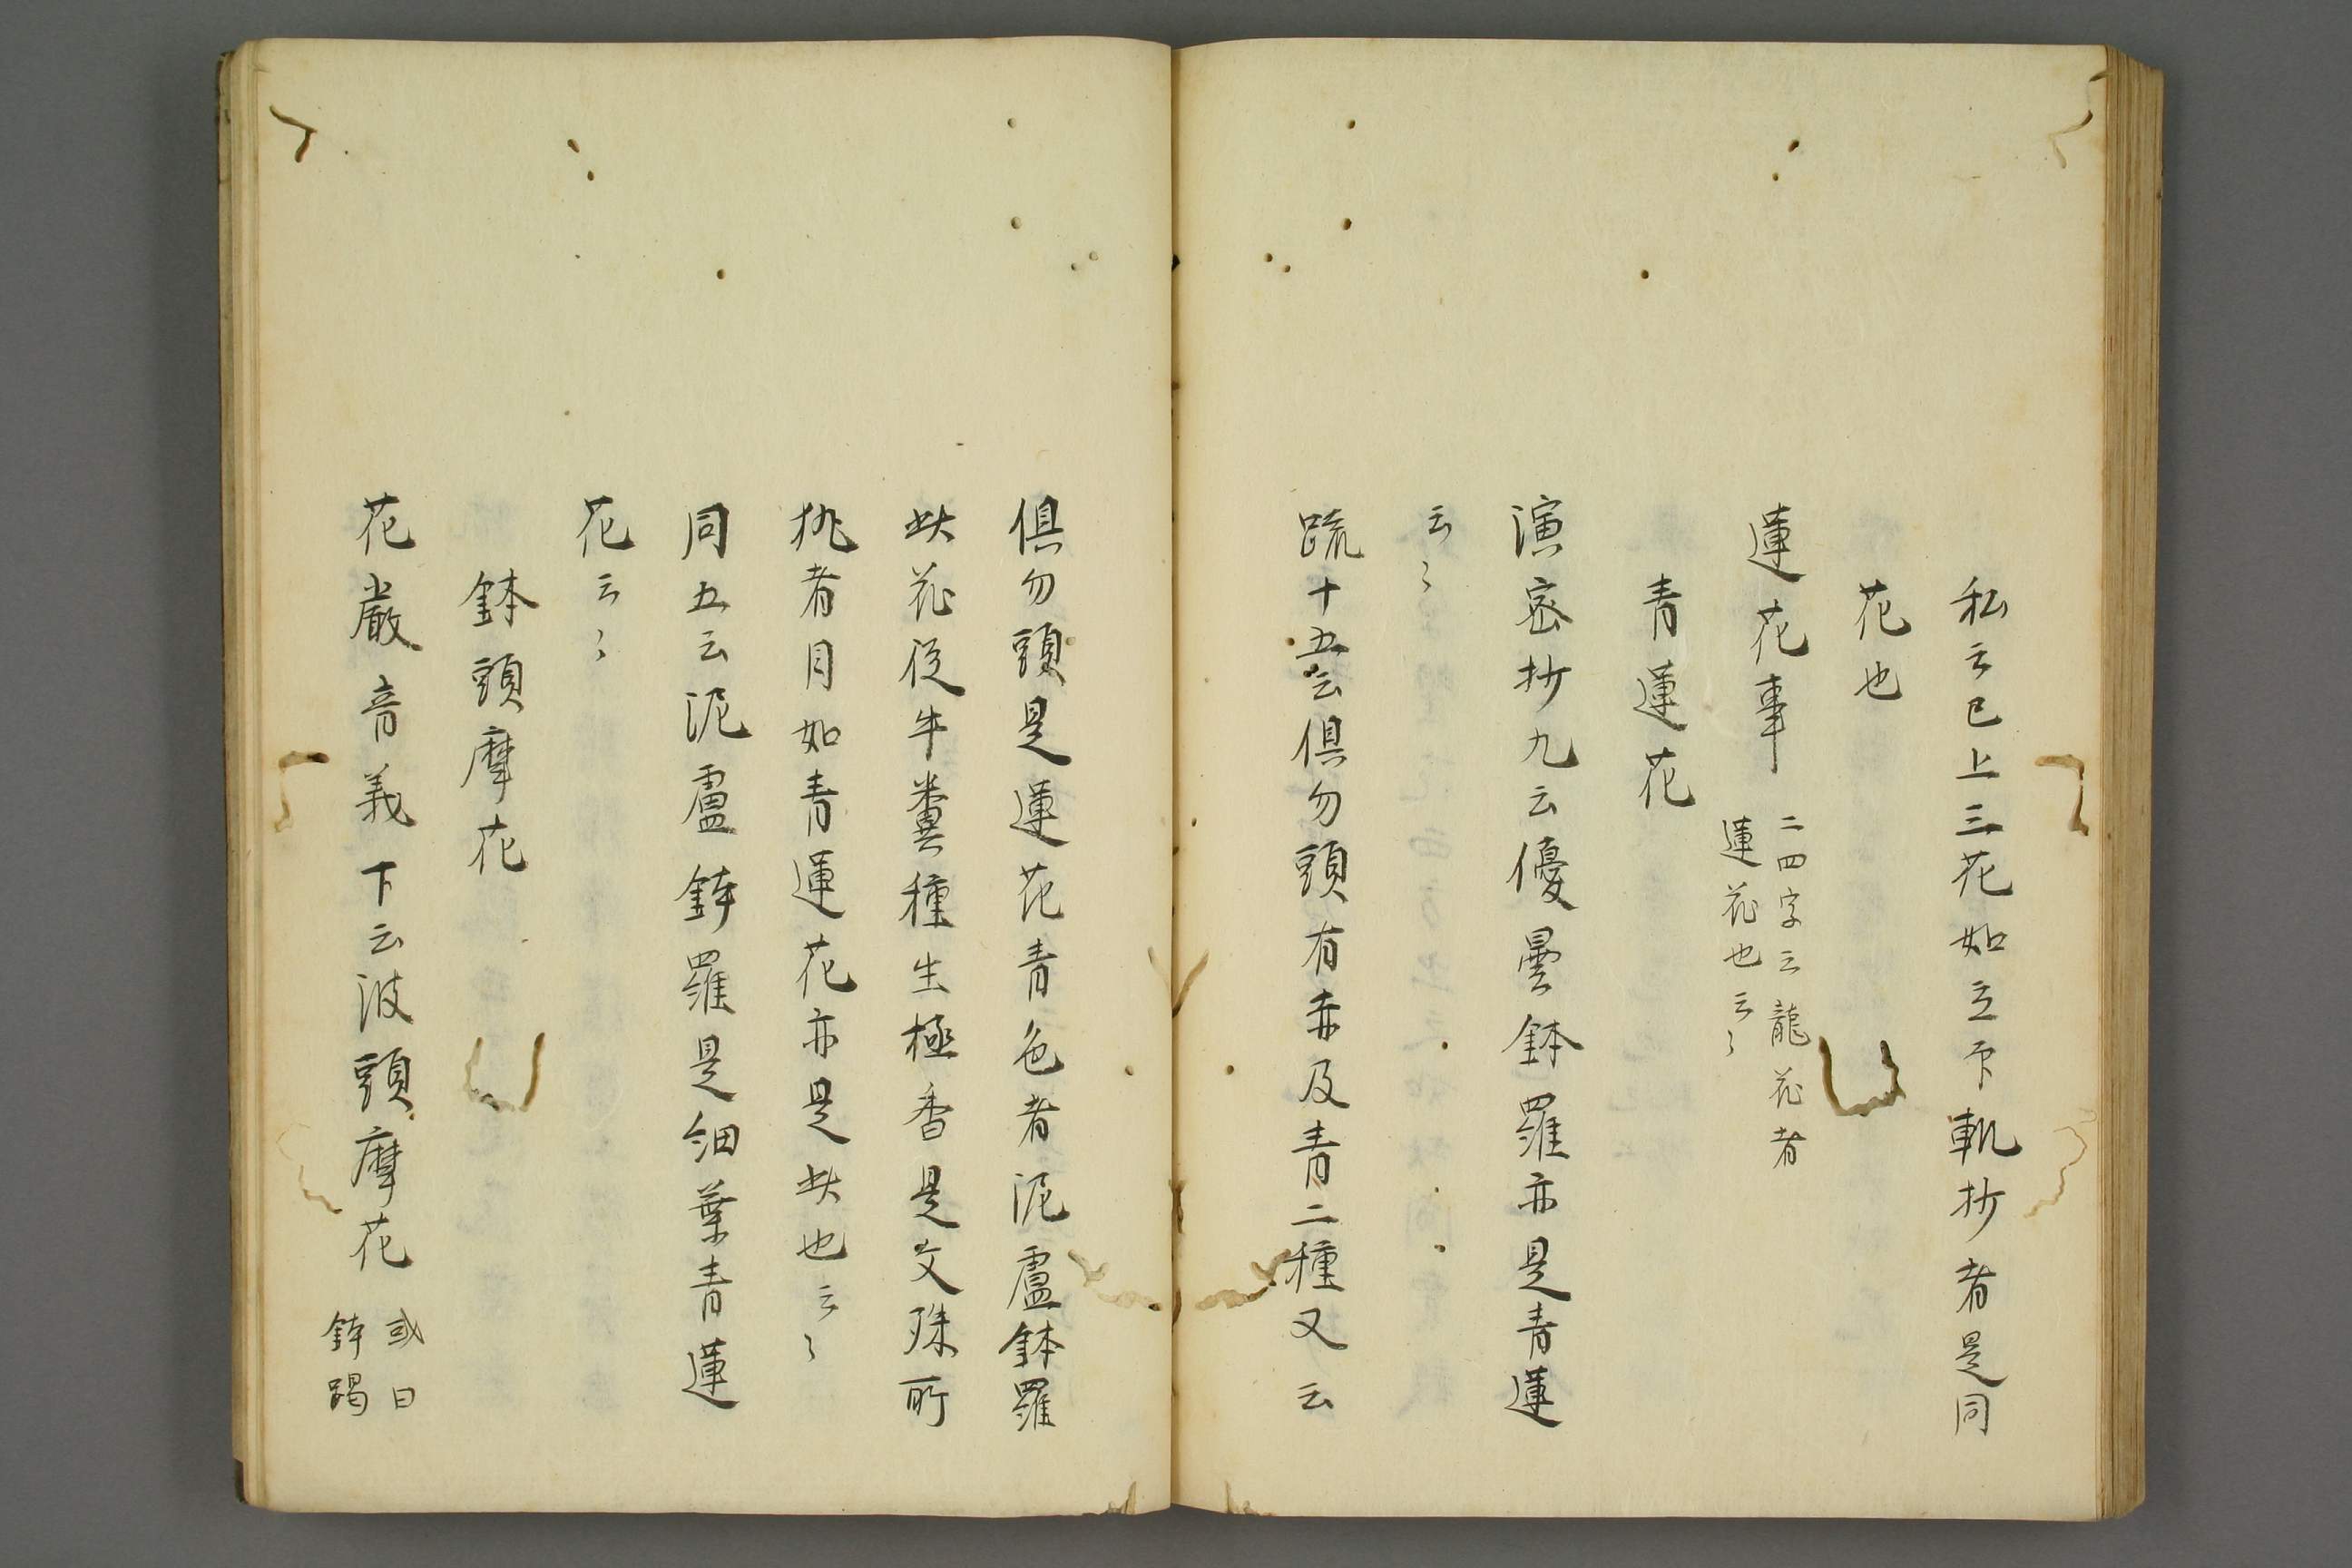 私云已上三花如立印軌抄者是同
花也
蓮花事
二四字云龍花者
蓮花也云〻
青蓮花
演密抄九云優曇鉢羅亦是青蓮
云〻
疏十五云俱勿頭有赤及青二種又云
俱勿頭是蓮花青色者泥盧鉢羅
此花從牛糞種生極香是文殊所
執者目如青蓮花亦是此也云〻
同五云泥盧鉢羅是細葉青蓮
花云〻
鉢頭摩花
花嚴音義下云波頭摩花
或曰
鉢踢